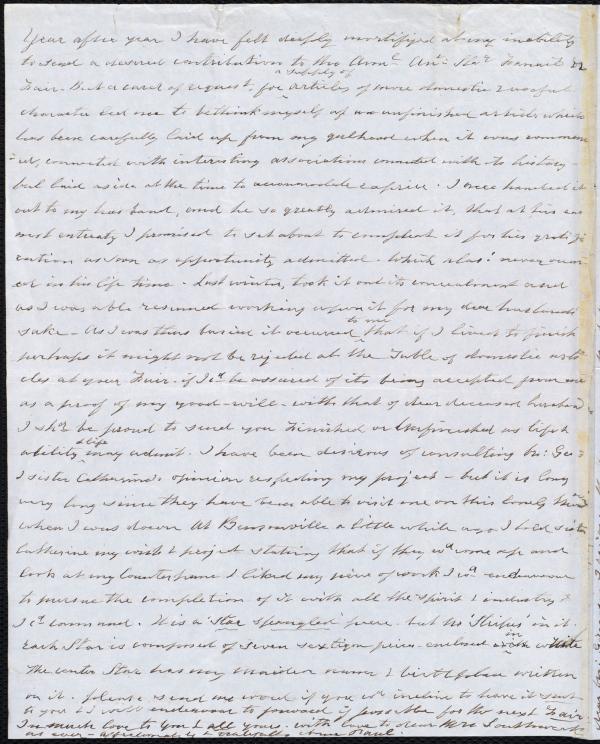 Year after year I have felt deeply mortified at my inability
to send a desired contribution to the Amn. An. Slav. Bazaar or
Fair. But a card of request, for a supply of articles of more domestic & useful
character led me to bethink myself of an unfinished article which
has been carefully laid up from my girlhood when it was commenc
-ed, connected with interesting associations connected with its history
but laid aside at the time to accommodate caprice. I once handed it
out to my husband, and he so greatly admired it, that at his ear
nest entreaty I promised to set about to compleat it for his gratifi
cation as soon as opportunity admitted - which alas! never occur
ed in his life time. Last winter, took it out its concealment and
as I was able resumed working upon it for my dear husband's
sake - As I was thus busied it occurred to me that if I lived to finish
perhaps it might not be rejected at the Table of domestic arti
cles at your Fair. if I cd. be assured of its being accepted from me
as a proof of my good-will - with that of dear deceased husband
I shd. be proud to send you Finished or Unfinished as life &
ability may admit. I have been desirous of consulting br: Geo
& sister Catharine's opinion respecting my project - but it is long
very long since they have been able to visit me on this lonely
when I was down at Bensonville a little while ago I told sister
Catharine my wish & project stating that if they wd. come up and
look at my Counterpane & liked my piece of work I wd. endeavour
to pursue the completion of it with all the spirit & industry
I cd. command. It is a 'Star Spangled' piece - but no 'Stripes' on it.
Each Star is composed of seven sextigon pieces - enclosed in with white
The center Star has my maiden name & birthplace written
on it. please send me word if you wd. incline to have it sent
to you & I will endeavour to forward if possible for the next Fair.
In much love to You & all yours, with love to dear Mrs Southwick
as ever - affectionately & gratefully Anne Paul.